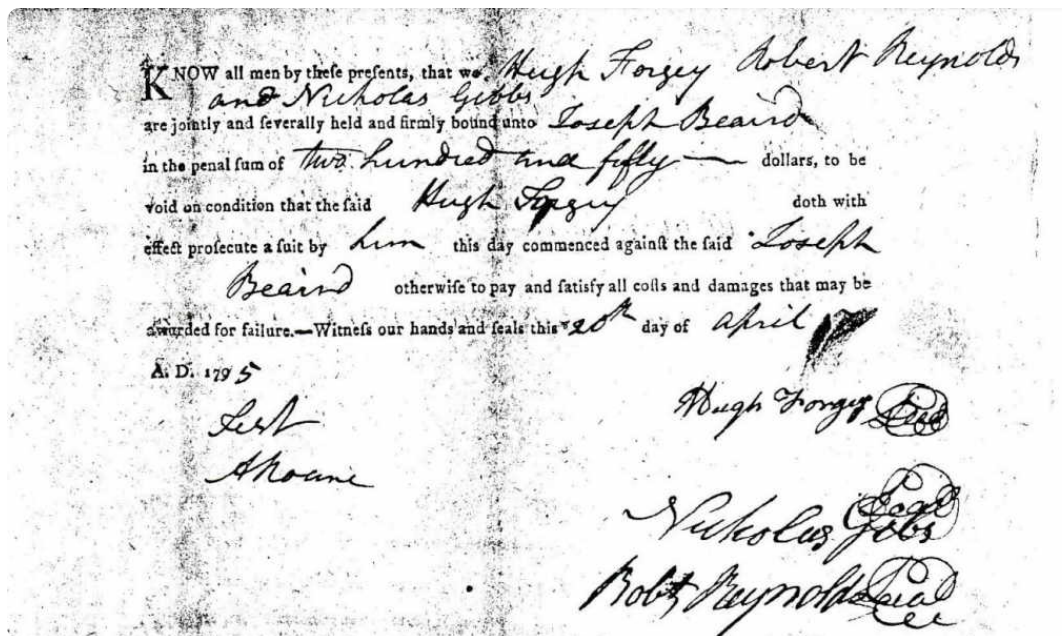 KNOW all men by theſe preſents, that we Hugh Forgey Robert Reynolds
and Nicholas Gibbs
are jointly and ſeverally held and firmly bound unto Joseph Beaird
in the penal ſum of two hundred and fifty — dollars, to be
void on condition that the ſaid Hugh Forgey doth with
effect proſecute a ſuit by him this day commenced againſt the ſaid Joseph
Beaird otherwiſe to pay and ſatisfy all coſts and damages that may be
awarded for failure.—Witneſs our hands and ſeals this 20th day of april
A. D. 1795
Test
Hugh Forgey Seal
ARoane
Seal
Nickolus Gibs
Robt Reynolds Seal